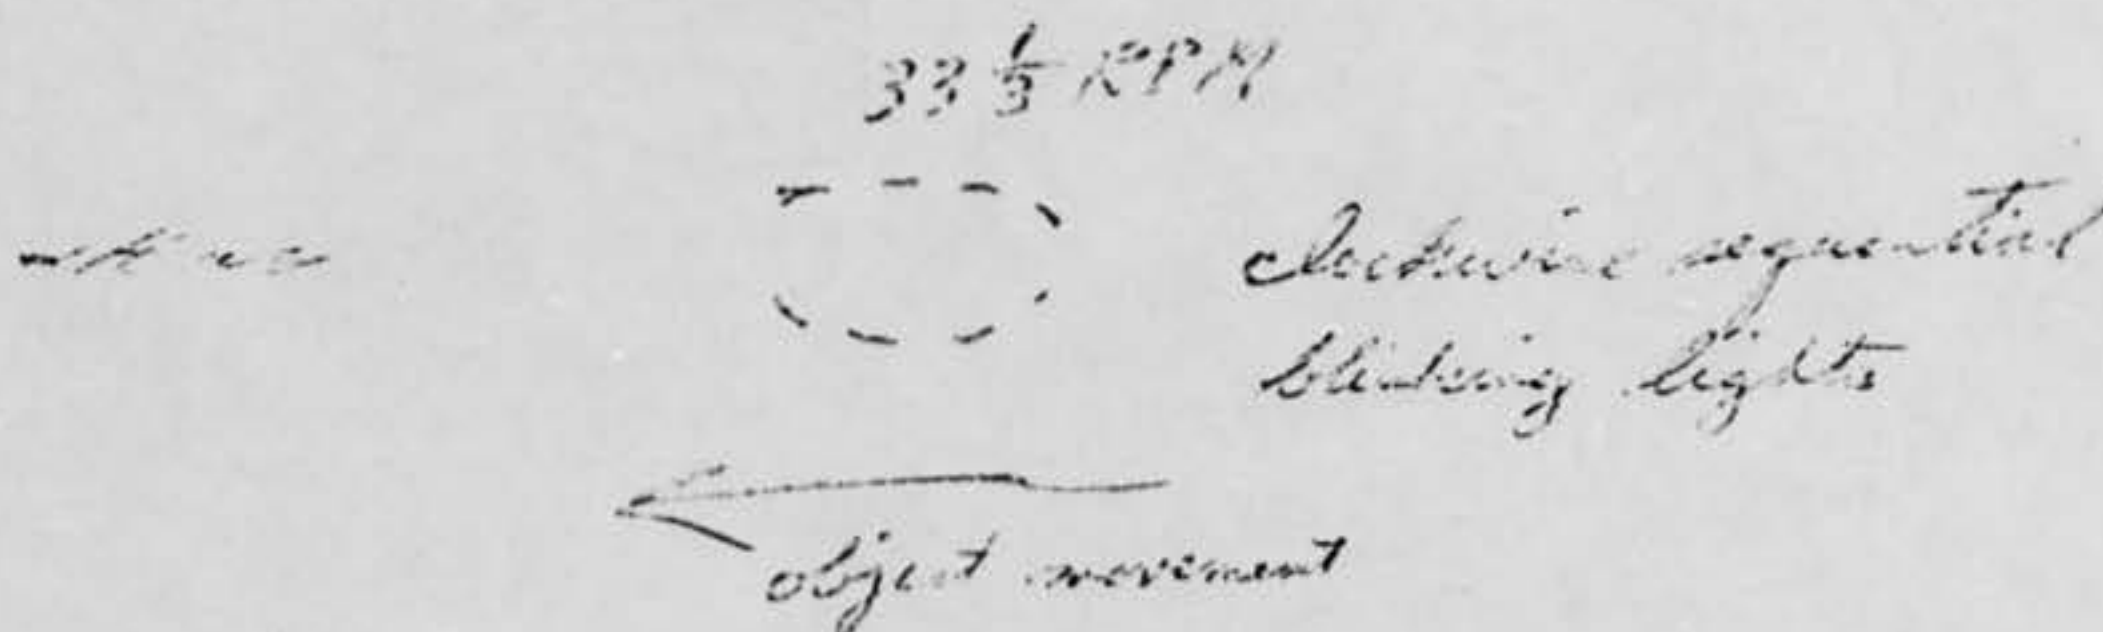 33 1/3 RPM
clockwise sequential
blinking lights
object movement